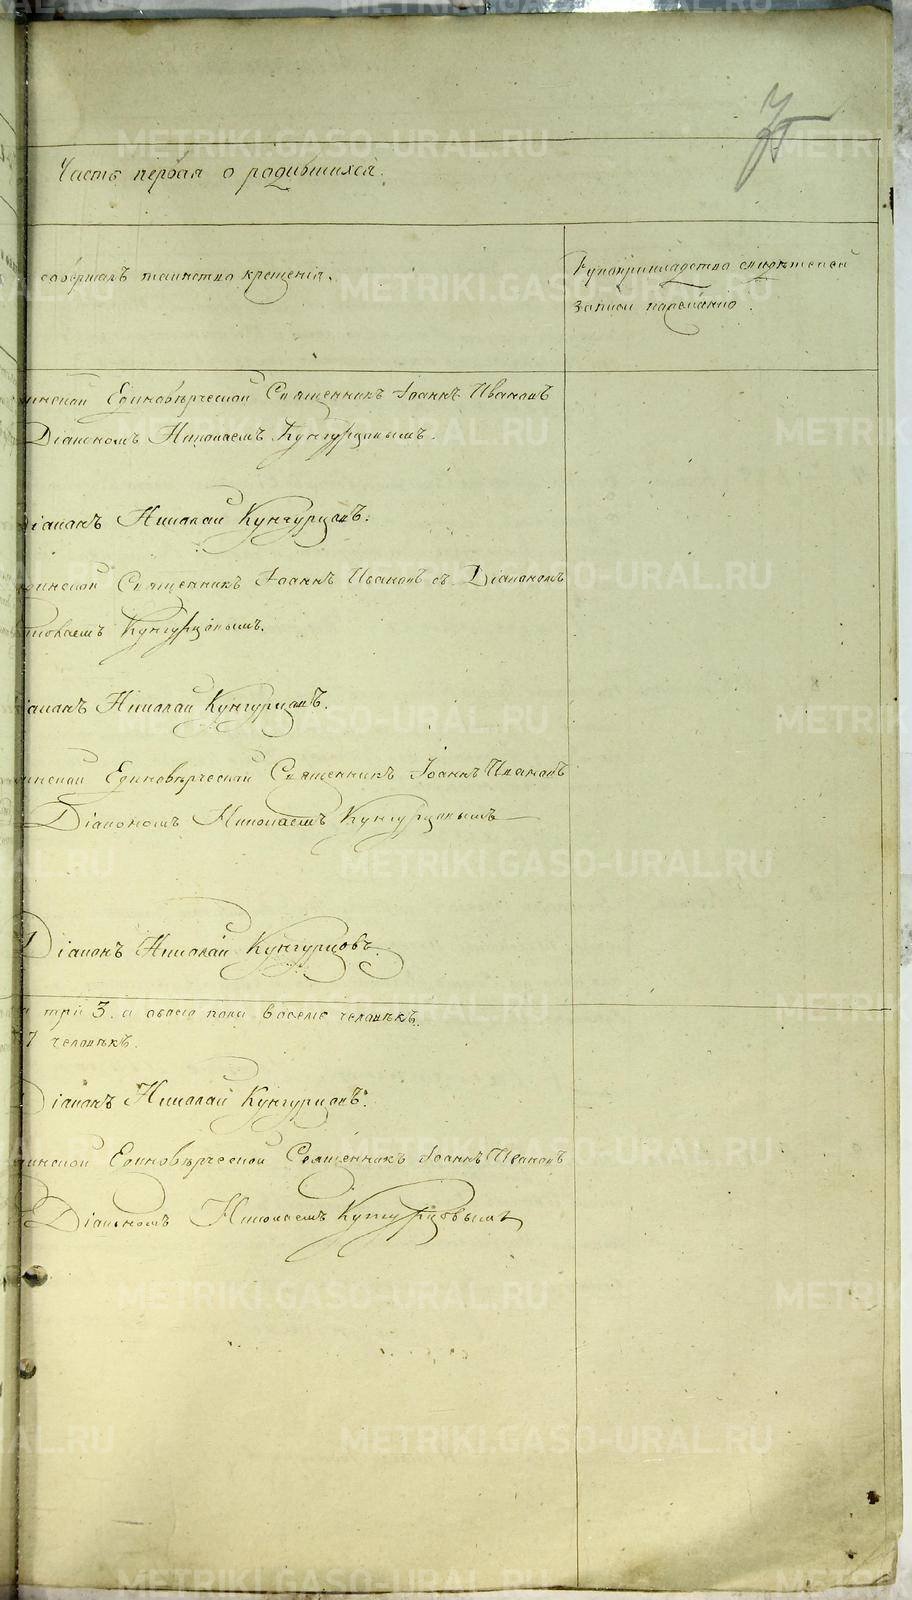 Часть первая о родившихся.
совершалъ таинство крещенія.
Рукоприкладство свидѣтелей
записи по желанію.
инской Единовѣрческой Священникъ Іоаннъ Ивановъ
Діакономъ Николаемъ Кунгурцовымъ.
Діаконъ Николай Кунгурцовъ.
инской Священникъ Іоаннъ Ивановъ съ Діакономъ
иколаемъ Кунгурцовымъ.
іаконъ Николай Кунгурцовъ.
инской Единовѣрческой Священникъ Іоаннъ Ивановъ
Діакономъ Николаемъ Кунгурцовымъ
Діаконъ Николай Кунгурцовъ
три 3. а обоего пола восемь человѣкъ.
7 человѣкъ.
Діаконъ Николай Кунгурцовъ.
инской Единовѣрческой Священникъ Іоаннъ Ивановъ
Діакономъ Николаемъ Кунгурцовымъ
METRIKI.GASO-URAL.RU